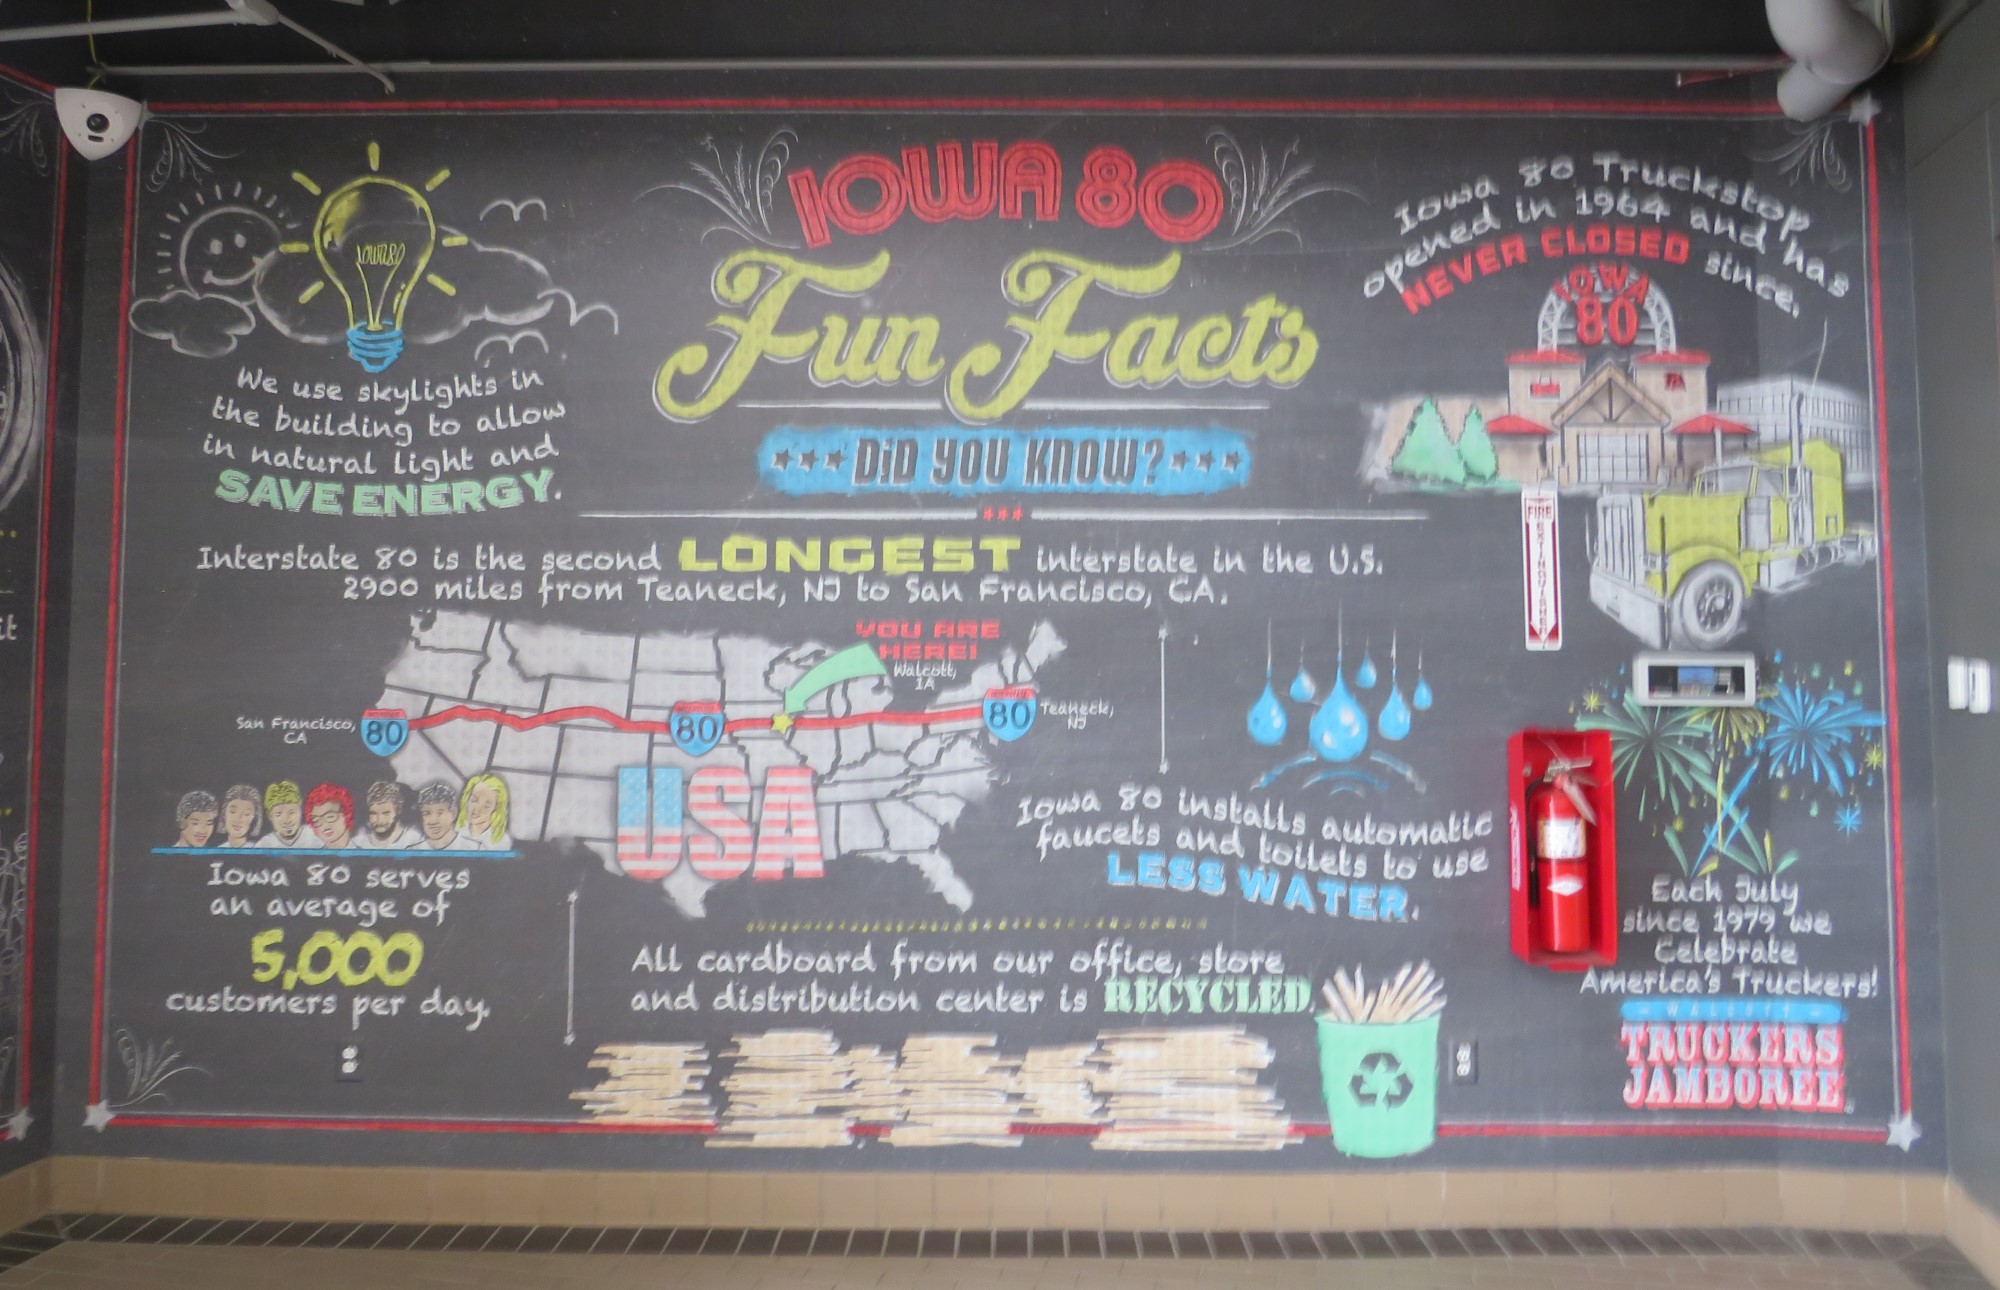 IOWA 80
Fun Facts
DID YOU KNOW?
IOWA 80
We use skylights in
the building to allow
in natural light and
SAVE ENERGY.
Iowa 80 Truckstop
opened in 1964 and has
NEVER CLOSED since.
IOWA
80
FIRE
EXTINGUISHER
Interstate 80 is the second LONGEST interstate in the U.S.
2900 miles from Teaneck, NJ to San Francisco, CA.
YOU ARE
HERE!
Walcott,
IA
San Francisco,
CA
80
80
80
Teaneck,
NJ
USA
Iowa 80 serves
an average of
5,000
customers per day.
Iowa 80 installs automatic
faucets and toilets to use
LESS WATER.
All cardboard from our office, store
and distribution center is RECYCLED.
Each July
since 1979 we
Celebrate
America's Truckers!
WALCOTT
TRUCKERS
JAMBOREE